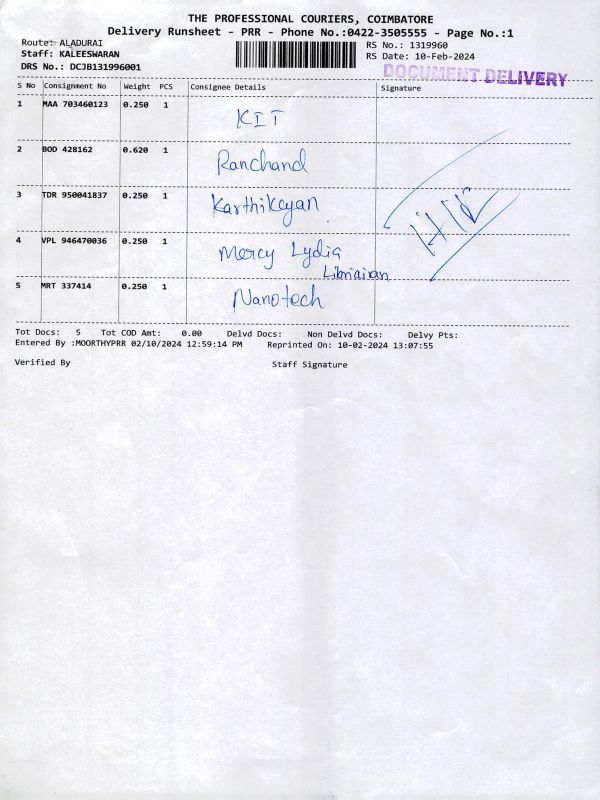 THE PROFESSIONAL COURIERS, COIMBATORE
Delivery Runsheet - PRR - Phone No.:0422-3505555 - Page No.:1
Route:- ALADURAI
Staff: KALEESWARAN
DRS No.: DCJB131996001
RS No.: 1319960
RS Date: 10-Feb-2024
DOCUMENT DELIVERY
S No Consignment No Weight PCS Consignee Details Signature
1 MAA 703460123 0.250 1 KIT
2 BOD 428162 0.620 1 Ranchand
3 TDR 950041837 0.250 1 Karthikeyan
4 VPL 946470036 0.250 1 Mercy Lydia
Librarian
5 MRT 337414 0.250 1 Nanotech
Tot Docs: 5 Tot COD Amt: 0.00 Delvd Docs: Non Delvd Docs: Delvy Pts:
Entered By :MOORTHYPRR 02/10/2024 12:59:14 PM Reprinted On: 10-02-2024 13:07:55
Verified By Staff Signature